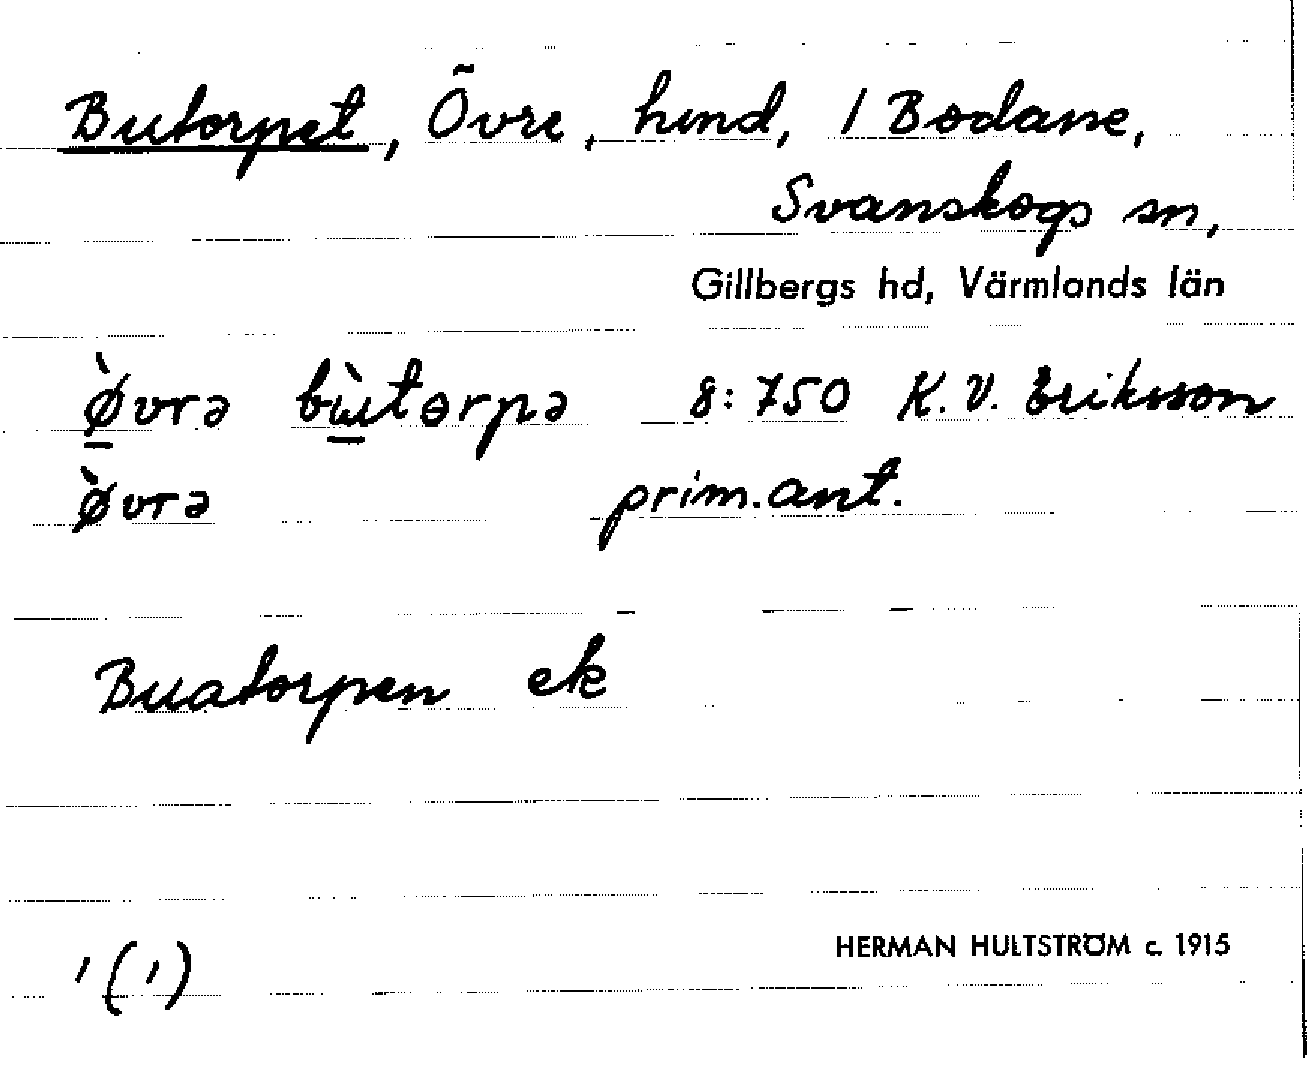 Butorpet, Övre, hmd, 1 Bodane,
Svanskogs sn,
Gillbergs hd, Värmlands län
ø̀vrə bɯ̀tɵrpə 8:750 K.V. Eriksson
ø̀vrə prim.ant.
Buatorpen ek
1(1)
HERMAN HULTSTRÖM c. 1915